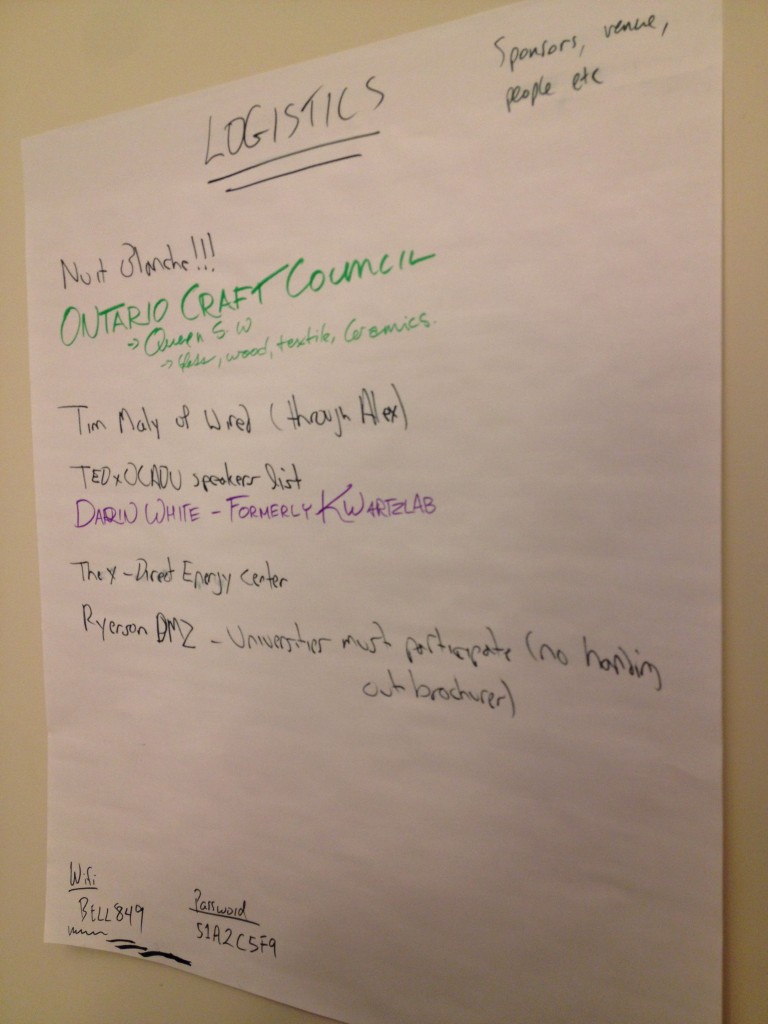 LOGISTICS
Sponsors, venue,
people etc
Nuit Blanche!!!
ONTARIO CRAFT COUNCIL
→ Queen S. W
→ Glass, wood, textile, Ceramics.
Tim Maly of Wired (through Alex)
TEDxOCADU speakers list
DARIN WHITE - FORMERLY KWARTZLAB
The X - Direct Energy Center
Ryerson DMZ - Universities must participate (no handing
out brochures)
Wifi
BELL849
Password
51A2C5F9